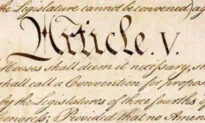 the Legislature cannot be convened) ag
Article. V.
Houses shall deem it necessary, sh
shall call a Convention for propos
by the Legislatures of three fourths of
Congress; Provided that no Amen